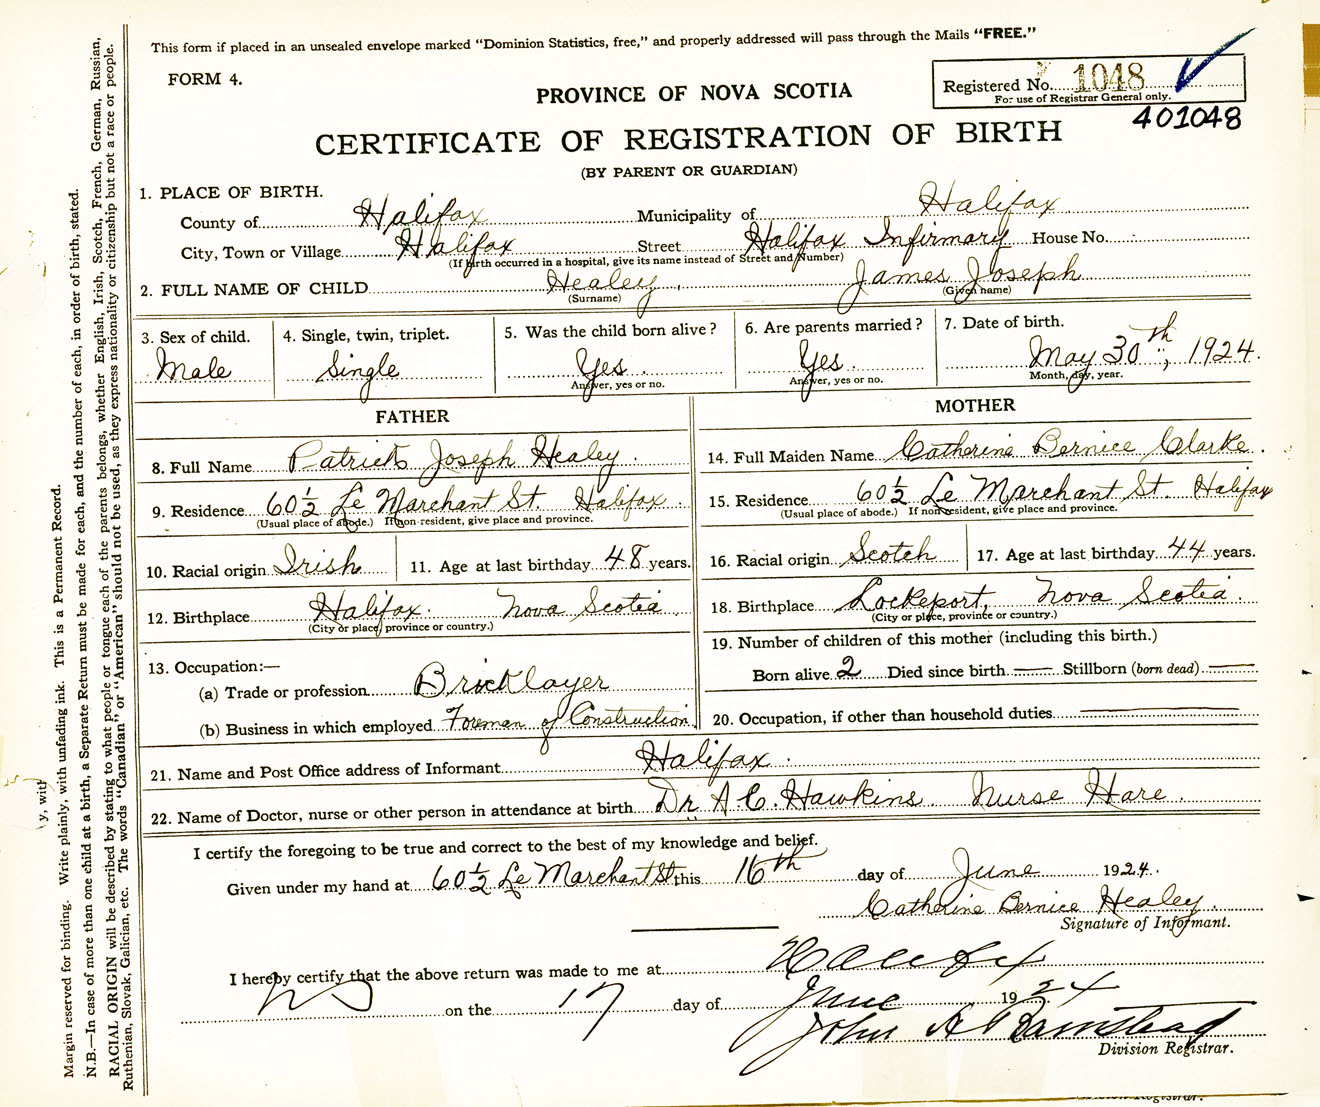 This form if placed in an unsealed envelope marked “Dominion Statistics, free,” and properly addressed will pass through the Mails “FREE.”
FORM 4.
Registered No. 1048
For use of Registrar General only.
401048
PROVINCE OF NOVA SCOTIA
CERTIFICATE OF REGISTRATION OF BIRTH
(BY PARENT OR GUARDIAN)
1. PLACE OF BIRTH.
County of Halifax Municipality of Halifax
City, Town or Village Halifax Street Halifax Infirmary House No.
(If birth occurred in a hospital, give its name instead of Street and Number)
2. FULL NAME OF CHILD Healey, James Joseph
(Surname) (Given name)
3. Sex of child. 4. Single, twin, triplet. 5. Was the child born alive? 6. Are parents married? 7. Date of birth.
Male Single Yes. Yes. May 30th, 1924.
Answer, yes or no. Answer, yes or no. Month, day, year.
FATHER
8. Full Name Patrick Joseph Healey.
9. Residence 60½ Le Marchant St. Halifax.
(Usual place of abode.) If non-resident, give place and province.
10. Racial origin Irish 11. Age at last birthday 48 years.
12. Birthplace Halifax. Nova Scotia
(City or place, province or country.)
13. Occupation:—
(a) Trade or profession Bricklayer
(b) Business in which employed Foreman of Construction.
MOTHER
14. Full Maiden Name Catherine Bernice Clarke.
15. Residence 60½ Le Marchant St. Halifax
(Usual place of abode.) If non-resident, give place and province.
16. Racial origin Scotch 17. Age at last birthday 44 years.
18. Birthplace Lockeport, Nova Scotia.
(City or place, province or country.)
19. Number of children of this mother (including this birth.)
Born alive 2 Died since birth — Stillborn (born dead) —
20. Occupation, if other than household duties —
21. Name and Post Office address of Informant Halifax.
22. Name of Doctor, nurse or other person in attendance at birth Dr. A C. Hawkins. Nurse Hare.
I certify the foregoing to be true and correct to the best of my knowledge and belief.
Given under my hand at 60½ Le Marchant St this 16th day of June 1924.
Catherine Bernice Healey.
Signature of Informant.
I hereby certify that the above return was made to me at Halifax
NS on the 17 day of June 1924
John A Barnstead
Division Registrar.
Margin reserved for binding. Write plainly, with unfading ink. This is a Permanent Record.
N.B.—In case of more than one child at a birth, a Separate Return must be made for each, and the number of each, in order of birth, stated.
RACIAL ORIGIN will be described by stating to what people or tongue each of the parents belongs, whether English, Irish, Scotch, French, German, Russian,
Ruthenian, Slovak, Galician, etc. The words “Canadian” or “American” should not be used, as they express nationality or citizenship but not a race or people.
y, with